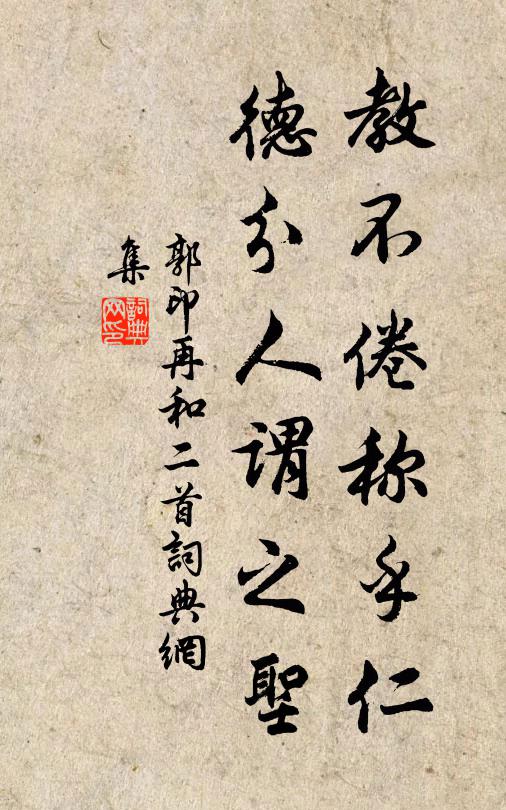 教不倦称乎仁
德分人謂之聖
郭印再和二首詞典網
集
詞典
网印